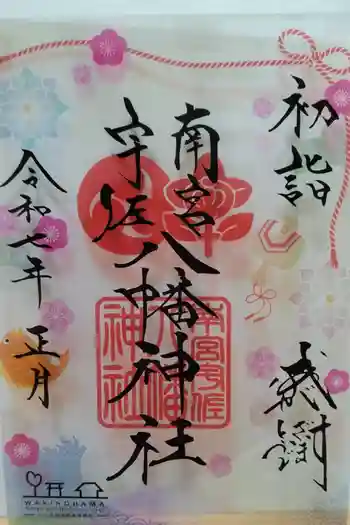 初詣
我謝
南宮
宇佐八幡神社
令和七年正月
南宮宇佐
八幡
神社
WAKINOHAMA